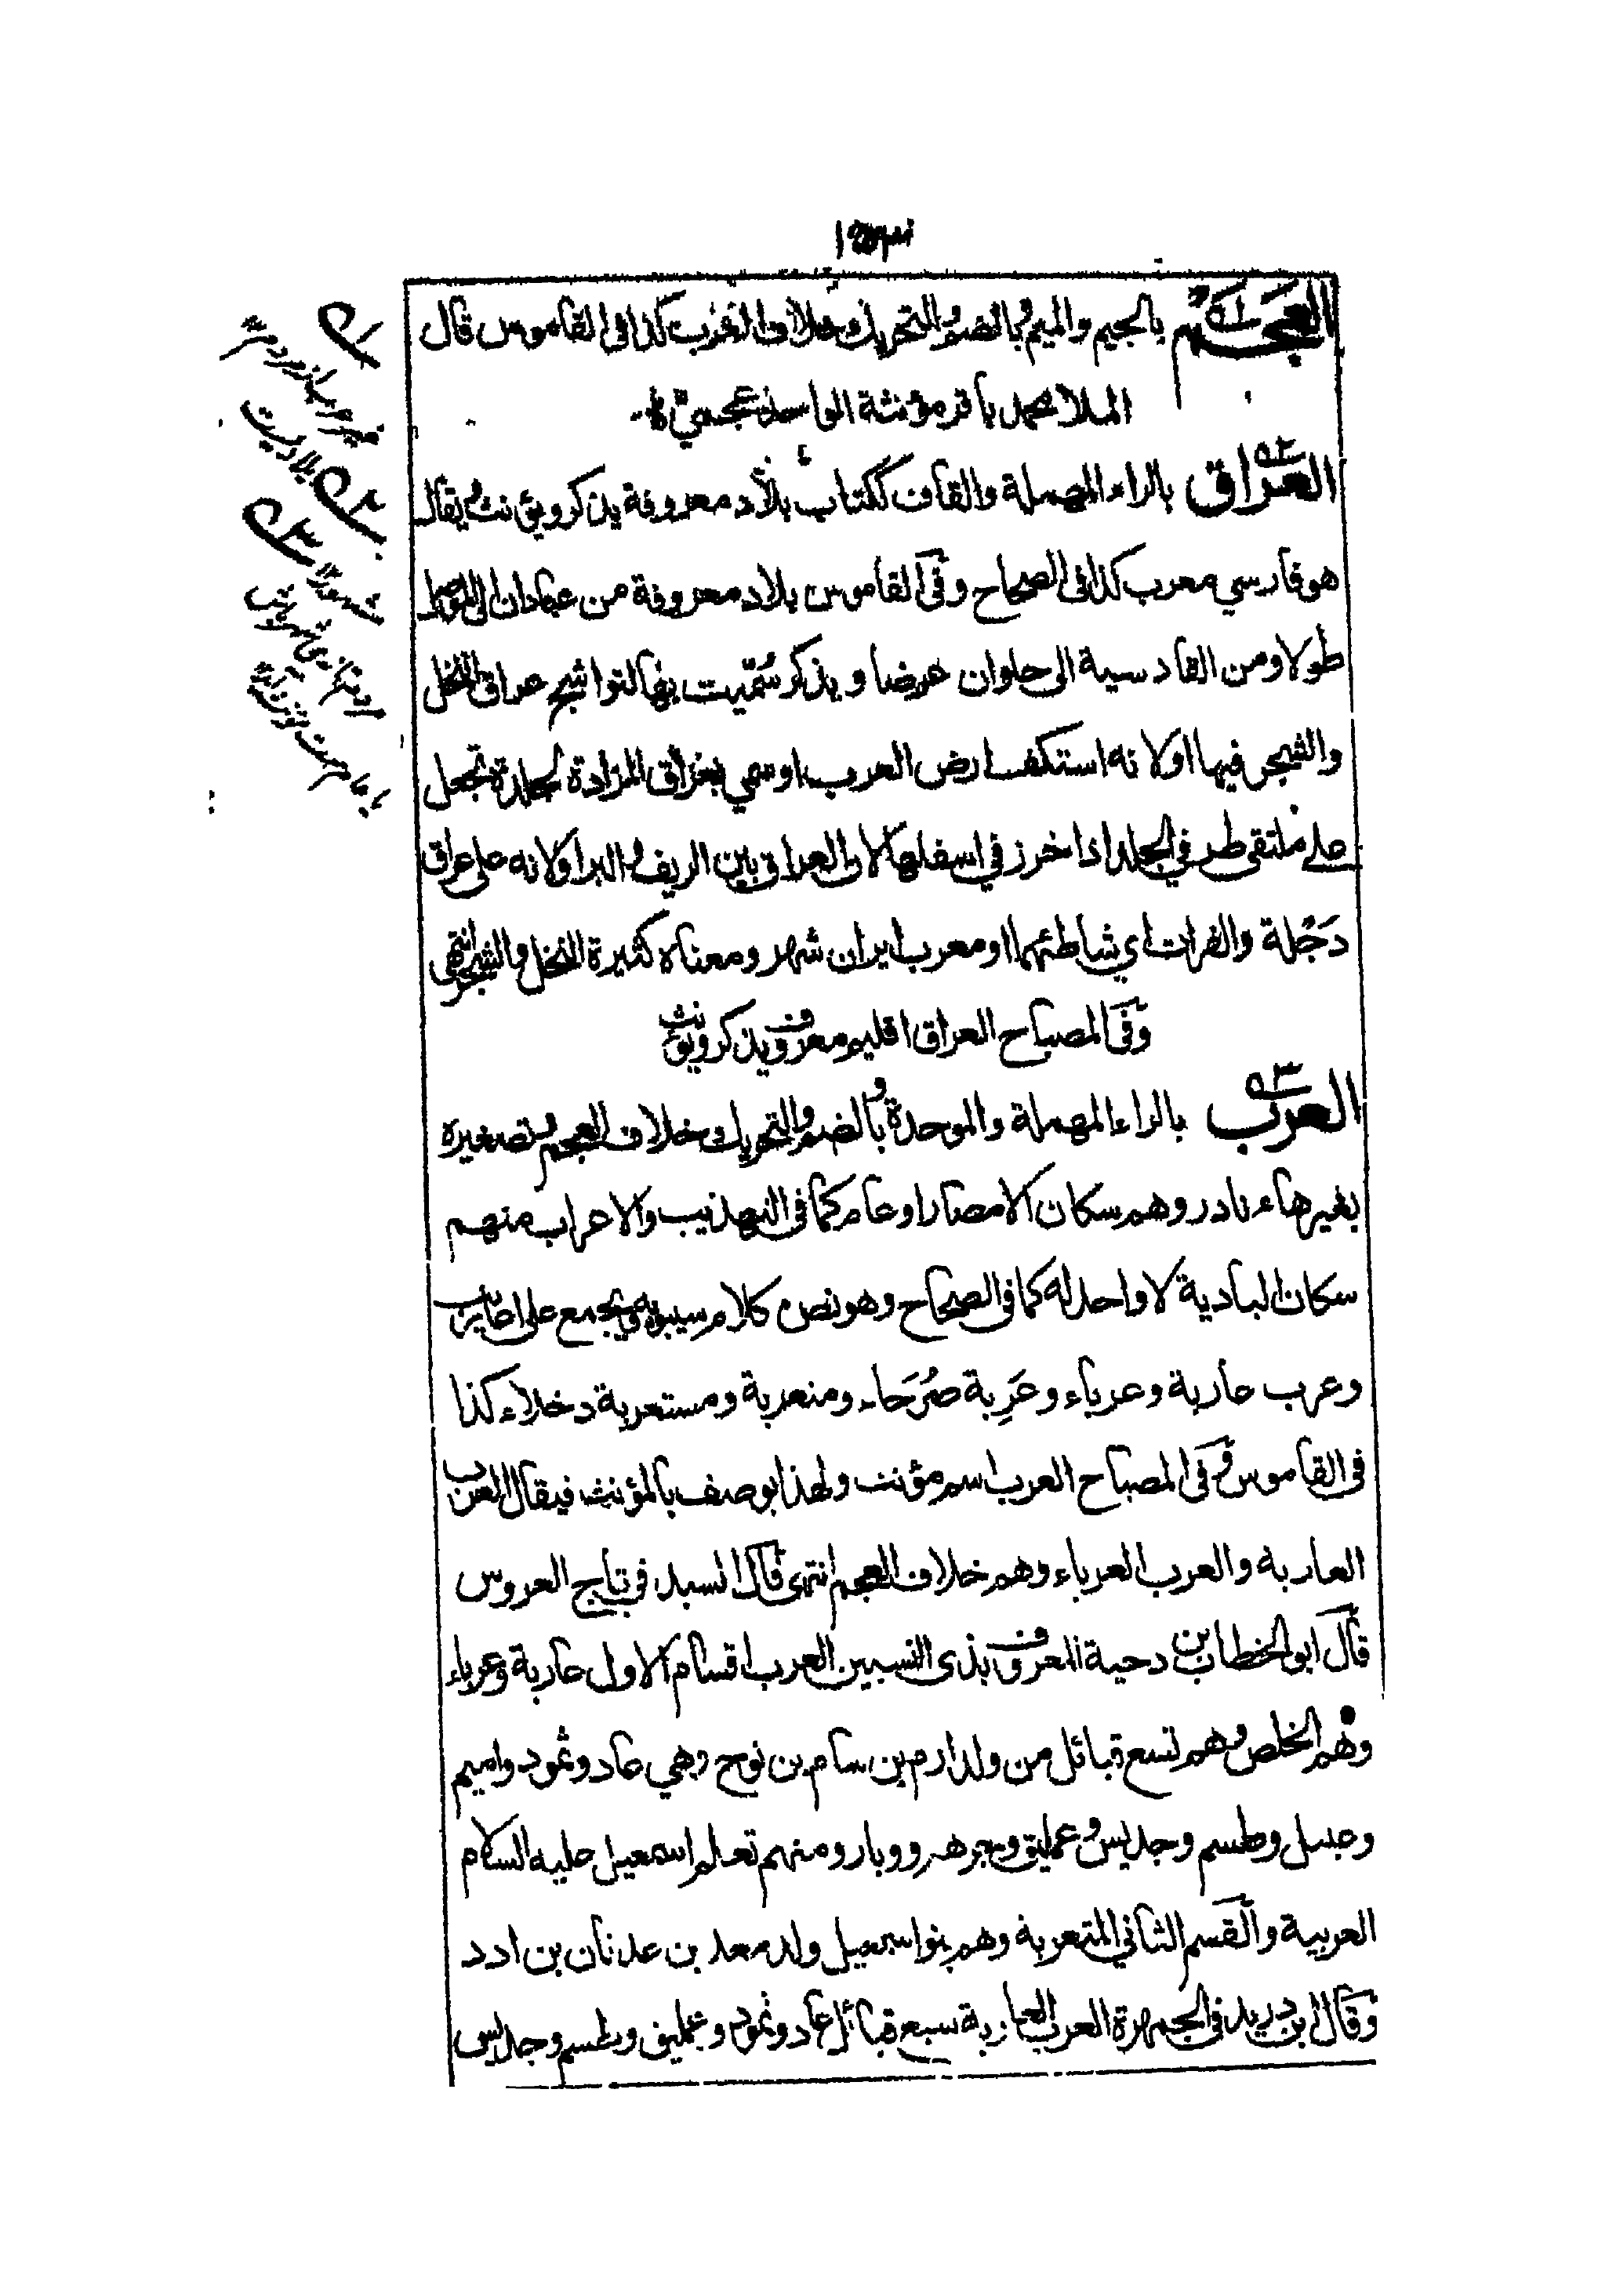 العجم بالجيم والميم وبالضم والتحريك خلاف العرب كذا فى القاموس قال
الملا محمد باقر مؤنثة الواحد عجمي
العراق بالراء المهملة والقاف ككتاب بلاد معروفة يذكر ويؤنث يقال
هو فارسي معرب كذا فى الصحاح وفى القاموس بلاد معروفة من عبادان الى الموصل
طولا ومن القادسية الى حلوان عرضا ويذكر سُمّيت بها لتواشج عراق النخل
والشجر فيها او لانه استكف ارض العرب او سمي بعراق المزادة لجلدة تجعل
على ملتقى طرفي الجلد اذا خرز في اسفلها لان العراق بين الريف والبر او لانه على عراق
دَجْلة والفرات اي شاطئهما او معرب ايران شهر ومعناه كثيرة النخل والشجر انتهى
وفى المصباح العراق اقليم معروف ويذكر ويؤنث
العرب بالراء المهملة والموحدة وبالضم والتحريك خلاف العجم وتصغيره
بغير هاء نادر وهم سكان الامصار او عام كما فى التهذيب والاعراب منهم
سكان البادية لا واحد له كما فى الصحاح وهو نص كلام سيبويه ويجمع على اعاريب
وعرب عاربة وعرباء وعَرِبة صُرَحاء ومتعربة ومستعربة دخلاء كذا
فى القاموس وفى المصباح العرب اسم مؤنث ولهذا يوصف بالمؤنث فيقال العرب
العاربة والعرب العرباء وهم خلاف العجم انتهى قال السيد فى تاج العروس
قال ابو الخطاب بن دحية المعروف بذى النسبين العرب اقسام الاول عاربة وعرباء
وهم الخلص وهم تسع قبائل من ولد ارم بن سام بن نوح وهي عاد وثمود واميم
وعبيل وطسم وجديس وعمليق وجرهم ووبار ومنهم تعلم اسمعيل عليه السلام
العربية والقسم الثاني المتعربة وهم بنو اسمعيل ولد معد بن عدنان بن ادد
وقال ابن دريد فى الجمهرة العرب العاربة سبع قبائل عاد وثمود وعمليق وطسم وجديس